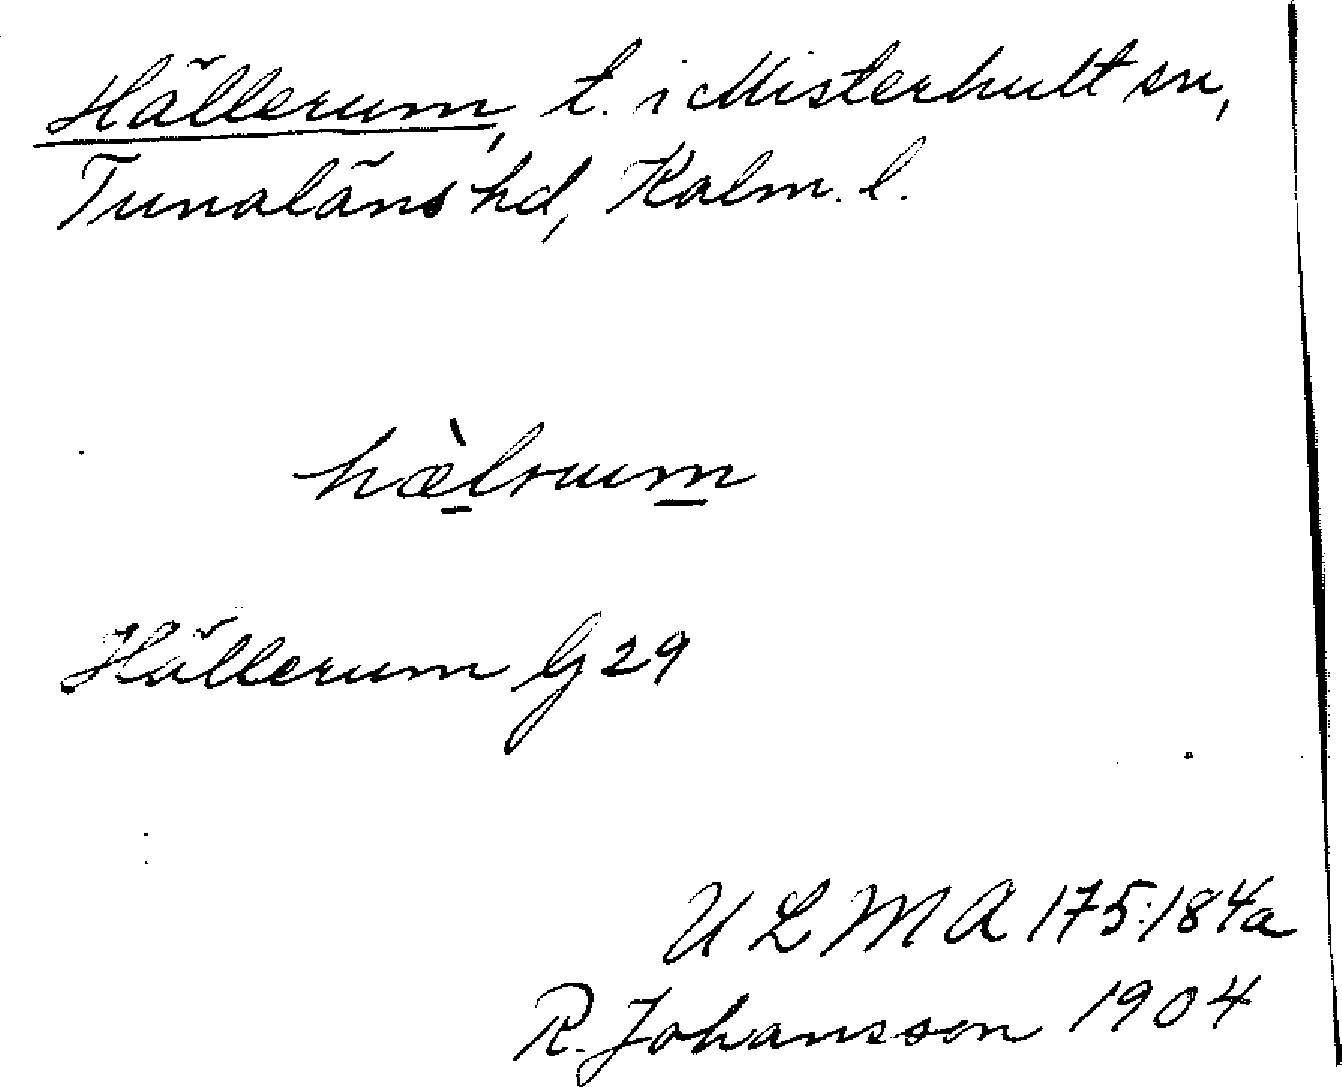 Hällerum, t. i Misterhult sn,
Tunaläns hd, Kalm. l.
hæ̀lrum
Hällerum G 29
ULMA 175:184a
R. Johansson 1904